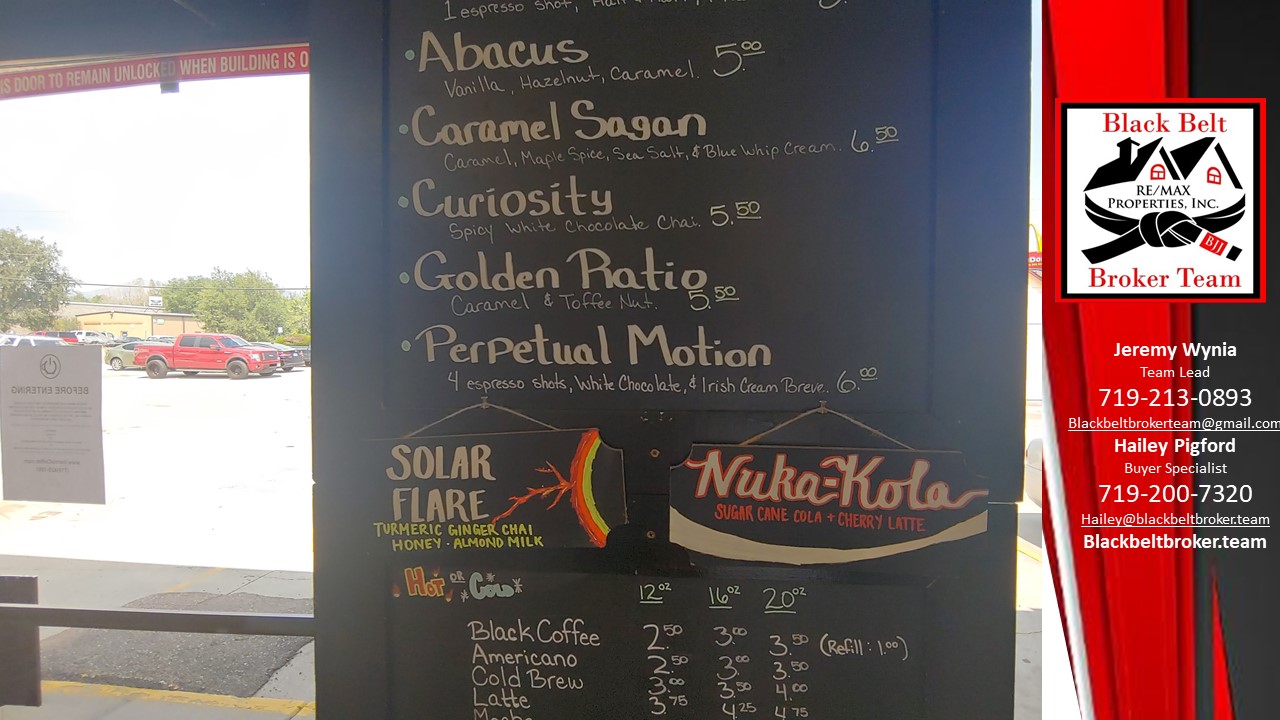 1 espresso shot, Half
IS DOOR TO REMAIN UNLOCKED WHEN BUILDING IS O
Abacus 5.00
Vanilla, Hazelnut, Caramel.
Caramel Sagan
Caramel, Maple Spice, Sea Salt, & Blue Whip Cream. 6.50
Curiosity
Spicy White Chocolate Chai. 5.50
Golden Ratio
Caramel & Toffee Nut. 5.50
Perpetual Motion
4 espresso shots, White Chocolate, & Irish Cream Breve. 6.00
BEFORE ENTERING
SOLAR
FLARE
TURMERIC GINGER CHAI
HONEY · ALMOND MILK
Nuka-Kola
SUGAR CANE COLA + CHERRY LATTE
Hot OR Cold 12oz 16oz 20oz
Black Coffee 2.50 3.00 3.50 (Refill: 1.00)
Americano 2.50 3.00 3.50
Cold Brew 3.00 3.50 4.00
Latte 3.75 4.25 4.75
Black Belt
RE/MAX
PROPERTIES, INC.
BJJ
Broker Team
Jeremy Wynia
Team Lead
719-213-0893
Blackbeltbrokerteam@gmail.com
Hailey Pigford
Buyer Specialist
719-200-7320
Hailey@blackbeltbroker.team
Blackbeltbroker.team